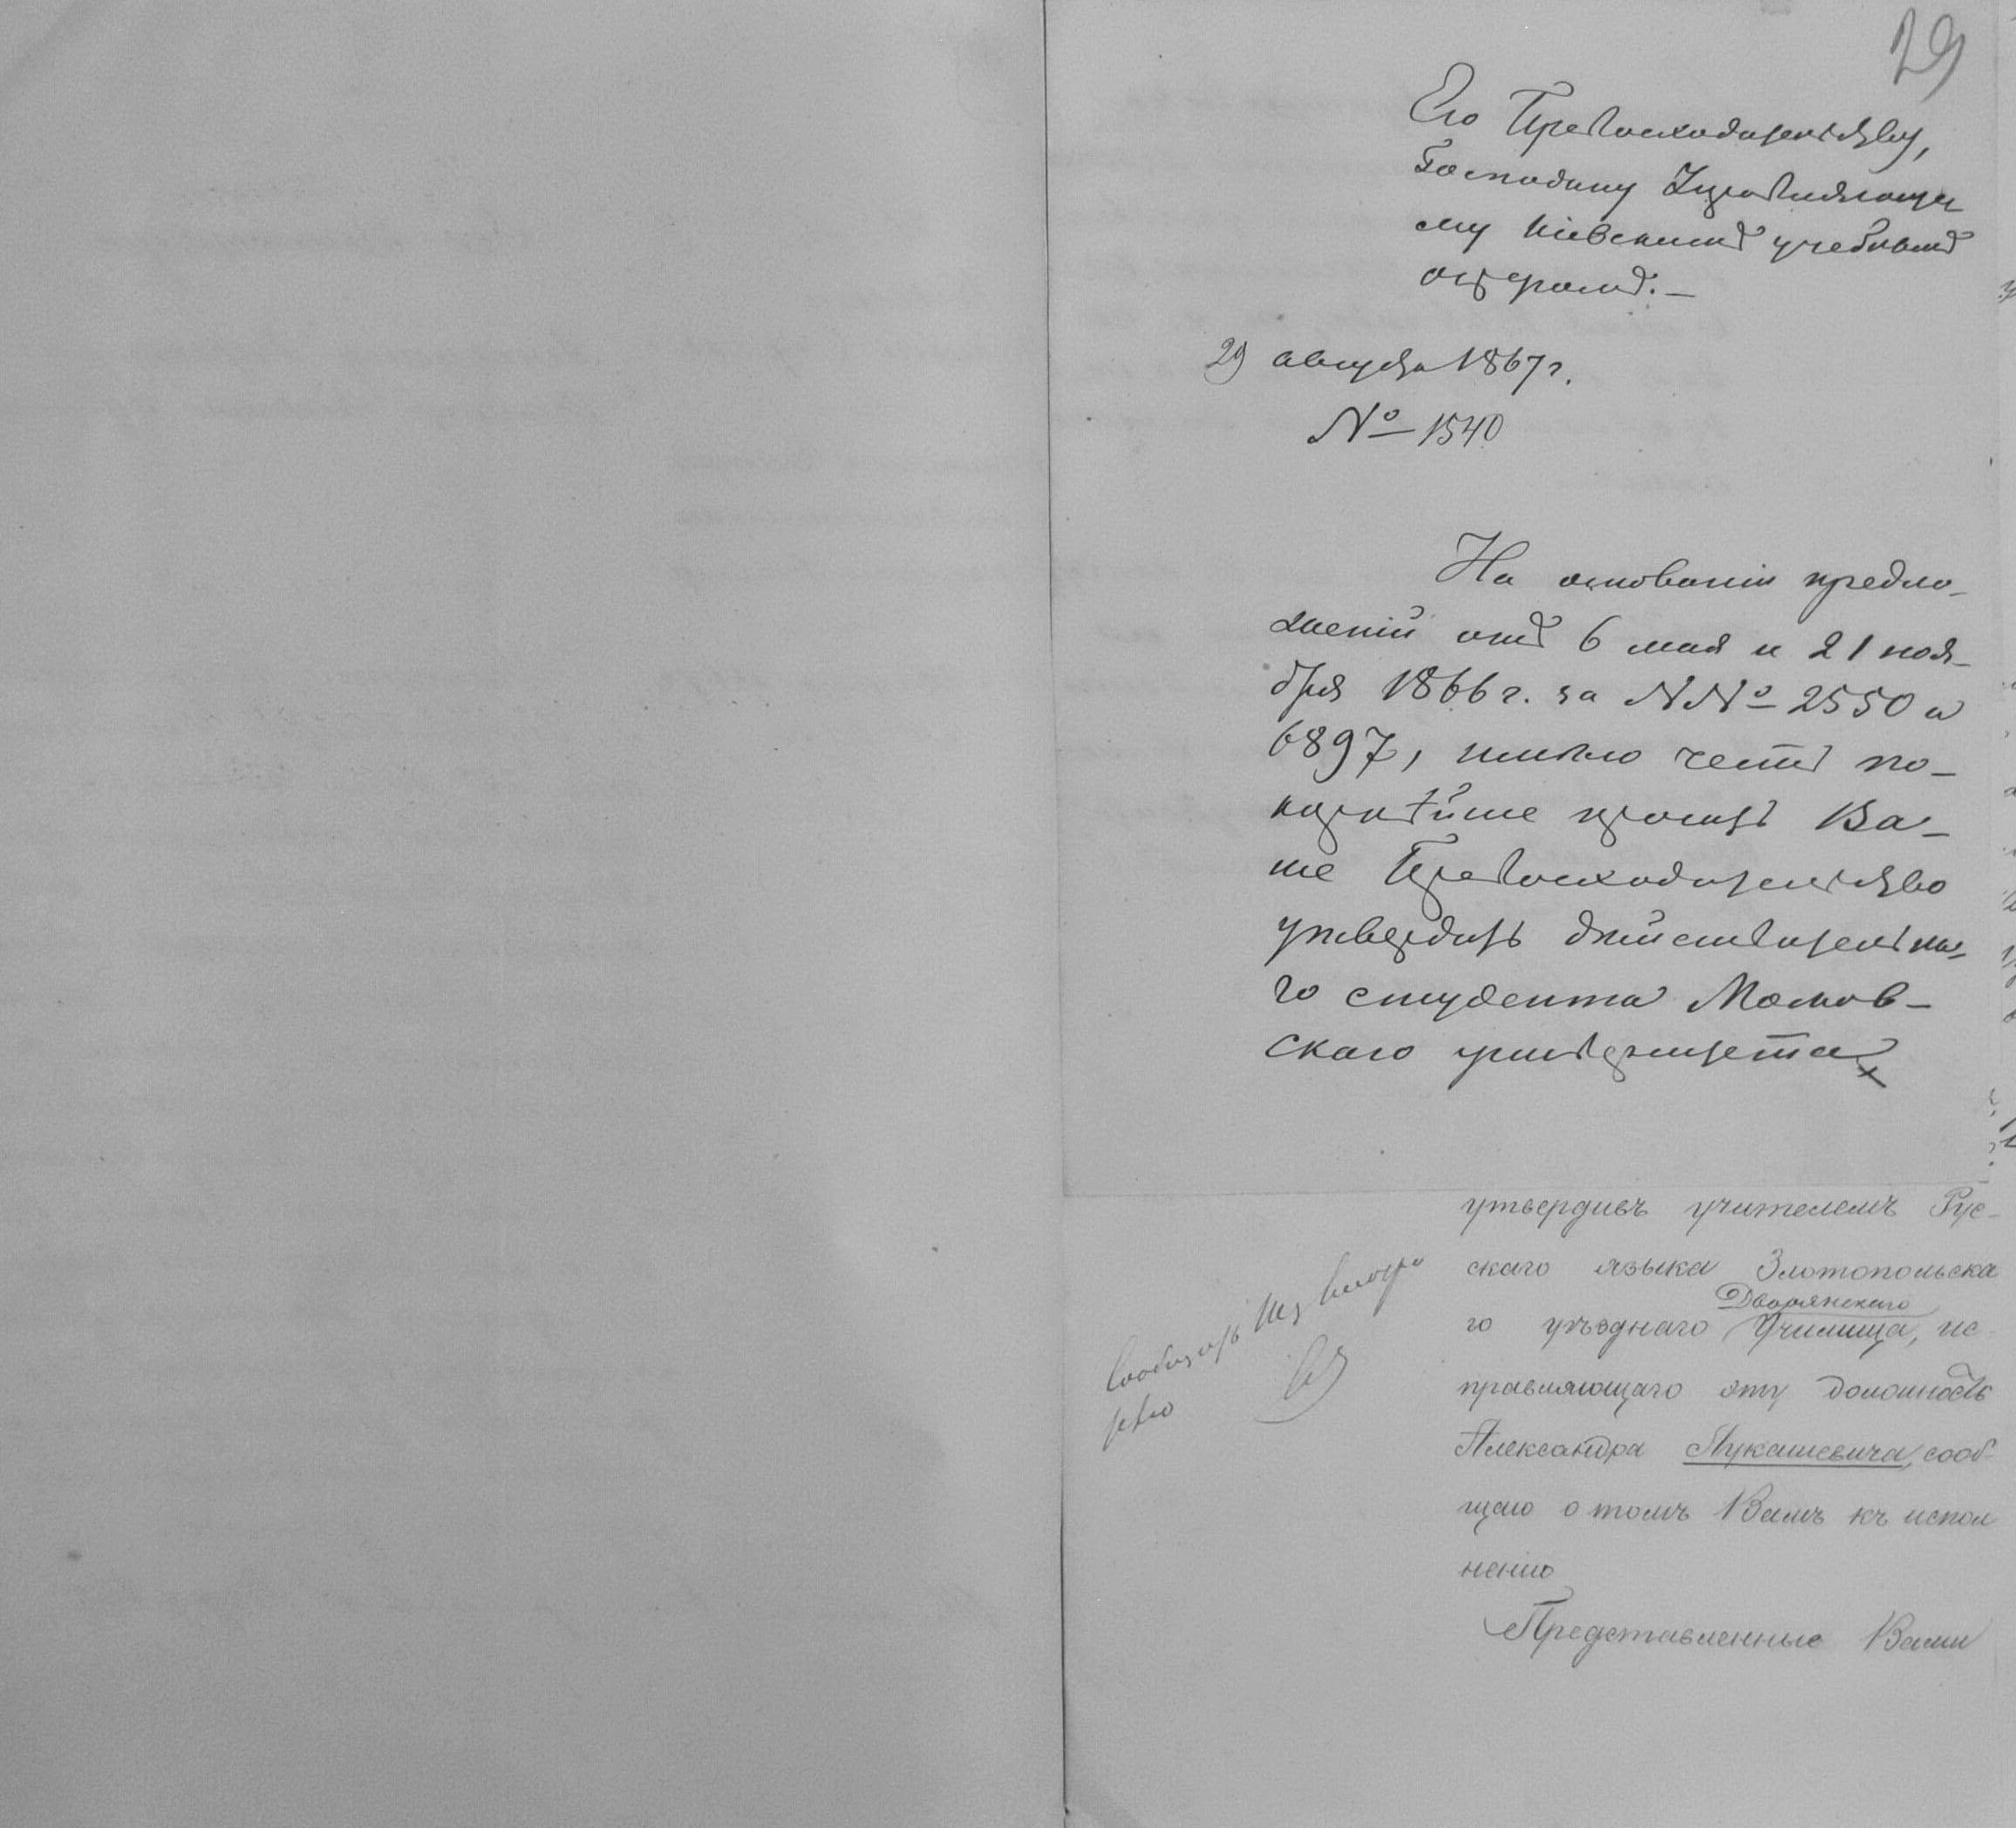 29
Его Превосходительству,
Господину Управляюще
му Кіевскимъ учебнымъ
округомъ. —
29 августа 1867 г.
№ 1540
На основаніи предло-
женій отъ 6 мая и 21 ноя-
бря 1866 г. за №№ 2550 и
6897, имѣю честь по-
корнѣйше просить Ва-
ше Превосходительство
утвердить дѣйствительна-
го студента Москов-
скаго университета
утвердивъ учителемъ Рус-
скаго языка Златопольска
го уѣзднаго Дворянскаго Училища, ис
правляющаго эту должность
Александра Лукашевича, сооб-
щаю о томъ Вамъ къ испол
ненію
Представленные Вами
Сообщить